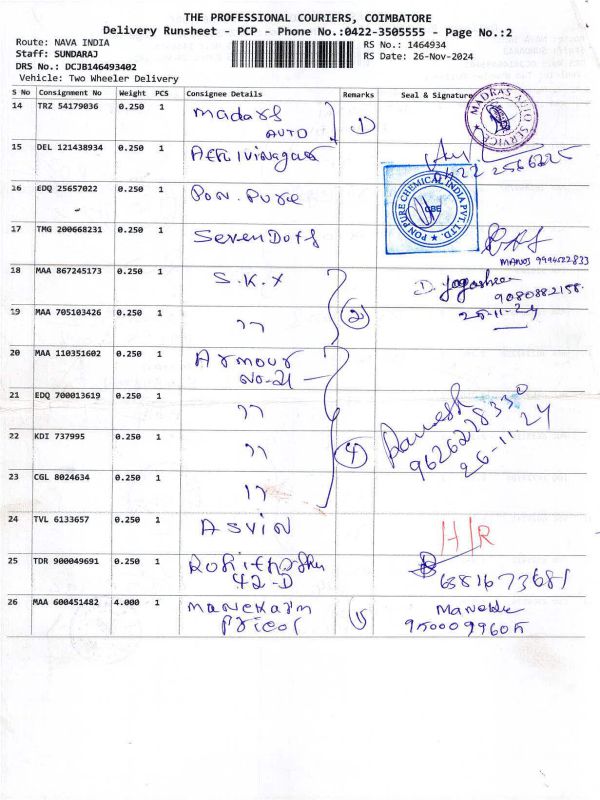 THE PROFESSIONAL COURIERS, COIMBATORE
Delivery Runsheet - PCP - Phone No.:0422-3505555 - Page No.:2
Route: NAVA INDIA
Staff: SUNDARAJ
DRS No.: DCJB146493402
Vehicle: Two Wheeler Delivery
RS No.: 1464934
RS Date: 26-Nov-2024
S No Consignment No Weight PCS Consignee Details Remarks Seal & Signature
14 TRZ 54179036 0.250 1 Madars ① MADRAS AUTO SERVICE
AUTO
15 DEL 121438934 0.250 1 0422 2566225
16 EDQ 25657022 0.250 1 Pon. Pure PON PURE CHEMICAL INDIA PVT. LTD. CBE
17 TMG 200668231 0.250 1 Seven Dots
MANOJ 9994522833
18 MAA 867245173 0.250 1 S.K.X ② D.
9080882158.
19 MAA 705103426 0.250 1 ''
20 MAA 110351602 0.250 1 Armour
No-21
21 EDQ 700013619 0.250 1 '' Ramesh
9626228330
22 KDI 737995 0.250 1 '' ④ 26-11-24
23 CGL 8024634 0.250 1 ''
24 TVL 6133657 0.250 1 ASVIN H/R
25 TDR 900049691 0.250 1 6381673681
42-D
26 MAA 600451482 4.000 1 Manekam ①
Pricol